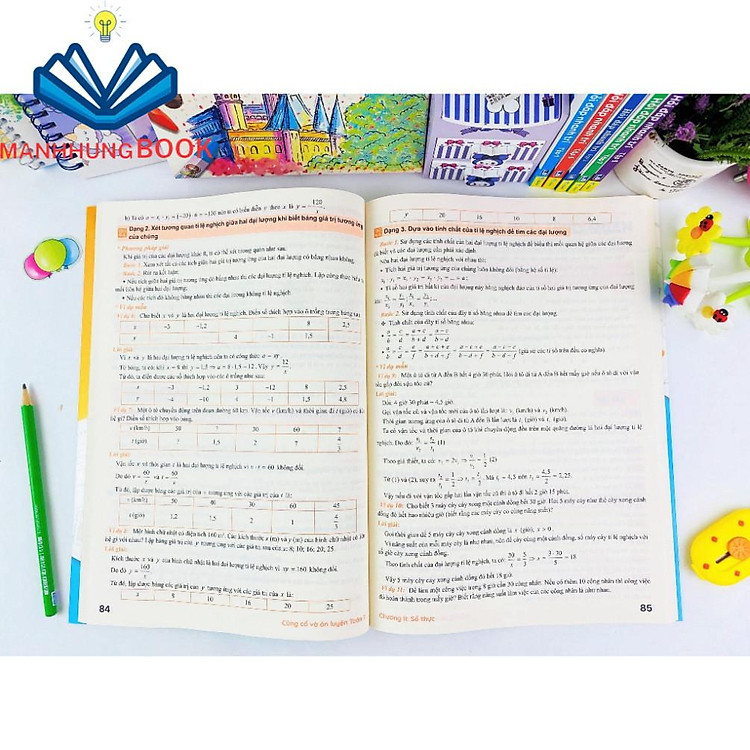 MANHHUNGBOOK
b) Ta có a = x₁ · y₁ = (−20) · 6 = −120 nên ta có biểu diễn y theo x là y = −120/x.
Dạng 2. Xét tương quan tỉ lệ nghịch giữa hai đại lượng khi biết bảng giá trị tương ứng
của chúng
* Phương pháp giải
Khi giá trị của các đại lượng khác 0, ta có thể xét tương quan như sau:
Bước 1. Xem xét tất cả các tích giữa hai giá trị tương ứng của hai đại lượng có bằng nhau không.
Bước 2. Rút ra kết luận:
• Nếu tích giữa hai giá trị tương ứng đó bằng nhau thì các đại lượng tỉ lệ nghịch. Lập công thức biểu thị
mối liên hệ giữa hai đại lượng.
• Nếu các tích đó không bằng nhau thì các đại lượng không tỉ lệ nghịch.
* Ví dụ mẫu
Ví dụ 6: Cho biết x và y là hai đại lượng tỉ lệ nghịch. Điền số thích hợp vào ô trống trong bảng sau:
x −3 −1,2 8 2,5
y 4 −1 1,5
Lời giải:
Vì x và y là hai đại lượng tỉ lệ nghịch nên ta có công thức a = xy.
Từ bảng, ta có: khi x = 8 thì y = 1,5 ⇒ a = 8 · 1,5 = 12. Vậy y = 12/x
Từ đó, ta điền được các số thích hợp vào các ô trống như sau:
x −3 −1,2 3 −12 8 2,5
y −4 −10 4 −1 1,5 4,8
Ví dụ 7: Một ô tô chuyển động trên đoạn đường 60 km. Vận tốc v (km/h) và thời gian đi t (giờ) có liên
hệ gì? Điền số thích hợp vào bảng.
v (km/h) 50 ? 30 60 ?
t (giờ) ? 1,5 2 ? 4/3
Lời giải:
Vận tốc v và thời gian t là hai đại lượng tỉ lệ nghịch vì v · t = 60 không đổi.
Do đó v = 60/t và t = 60/v
Từ đó, lập được bảng các giá trị của v tương ứng với các giá trị của t là:
v (km/h) 50 40 30 60 45
t (giờ) 1,2 1,5 2 1 4/3
Ví dụ 8: Một hình chữ nhật có diện tích 160 m². Các kích thước x (m) và y (m) của hình chữ nhật có liên
hệ gì với nhau? Lập bảng giá trị của y tương ứng với các giá trị sau của x: 8; 10; 16; 20; 25.
Lời giải:
Kích thước x và y của hình chữ nhật là hai đại lượng tỉ lệ nghịch vì xy = 160 không đổi.
Do đó y = 160/x
Từ đó, lập được bảng các giá trị của y tương ứng với các giá trị của x là:
x 8 10 16 20 25
84
Củng cố và ôn luyện Toán 7
y 20 16 10 8 6,4
Dạng 3. Dựa vào tính chất của tỉ lệ nghịch để tìm các đại lượng
Bước 1. Sử dụng các tính chất của hai đại lượng tỉ lệ nghịch để biểu thị mối quan hệ giữa các đại lượng
đã biết với các đại lượng cần phải xác định
Nếu hai đại lượng tỉ lệ nghịch với nhau thì:
• Tích hai giá trị tương ứng của chúng luôn không đổi (bằng hệ số tỉ lệ):
• Tỉ số hai giá trị bất kì của đại lượng này bằng nghịch đảo của tỉ số hai giá trị tương ứng của đại lượng
Bước 2. Sử dụng tính chất của dãy tỉ số bằng nhau để tìm các đại lượng.
❖ Tính chất của dãy tỉ số bằng nhau:
• a/b = c/d = (a+c)/(b+d) = (a−c)/(b−d)
(giả sử các tỉ số trên đều có nghĩa).
* Ví dụ mẫu
Ví dụ 9: Một ô tô đi từ A đến B hết 4 giờ 30 phút. Hỏi ô tô đi từ A đến B hết mấy giờ nếu ô tô đi với vận
tốc gấp đôi vận tốc cũ?
Lời giải:
Đổi: 4 giờ 30 phút = 4,5 giờ.
Gọi vận tốc cũ và vận tốc mới của ô tô lần lượt là: v₁ (km/h) và v₂ (km/h).
Thời gian tương ứng của ô tô đi từ A đến B lần lượt là t₁ (giờ) và t₂ (giờ).
Ta có vận tốc và thời gian của ô tô khi chuyển động đều trên một quãng đường là hai đại lượng tỉ lệ
nghịch. Do đó: v₁/v₂ = t₂/t₁ (1)
Theo giả thiết, ta có: v₂ = 2v₁ ⇒ v₁/v₂ = 1/2 (2)
Từ (1) và (2), suy ra t₂/t₁ = 1/2 ⇒ t₂ = t₁/2. Mà t₁ = 4,5 nên t₂ = 4,5/2 = 2,25.
Vậy nếu đi với vận tốc gấp hai lần vận tốc cũ thì ô tô đi hết 2 giờ 15 phút.
Ví dụ 10: Cho biết 3 máy cày cày xong một cánh đồng hết 30 giờ. Hỏi 5 máy cày như thế cày xong cánh
đồng đó hết bao nhiêu giờ (biết rằng các máy cày có cùng năng suất)?
Lời giải:
Gọi thời gian để 5 máy cày cày xong cánh đồng là x (giờ), x > 0.
Vì năng suất của mỗi máy cày là như nhau, nên để cày cùng một cánh đồng, số máy cày tỉ lệ nghịch với
số giờ cày xong cánh đồng.
Theo tính chất của đại lượng tỉ lệ nghịch, ta có: 30/x = 5/3 ⇒ x = 3·30/5 = 18
Vậy 5 máy cày cày xong cánh đồng đó hết 18 giờ.
Ví dụ 11: Để làm một công việc trong 8 giờ cần 30 công nhân. Nếu có thêm 10 công nhân thì công việc
đó hoàn thành trong mấy giờ? Biết rằng năng suất làm việc của các công nhân là như nhau.
Chương II: Số thực
85